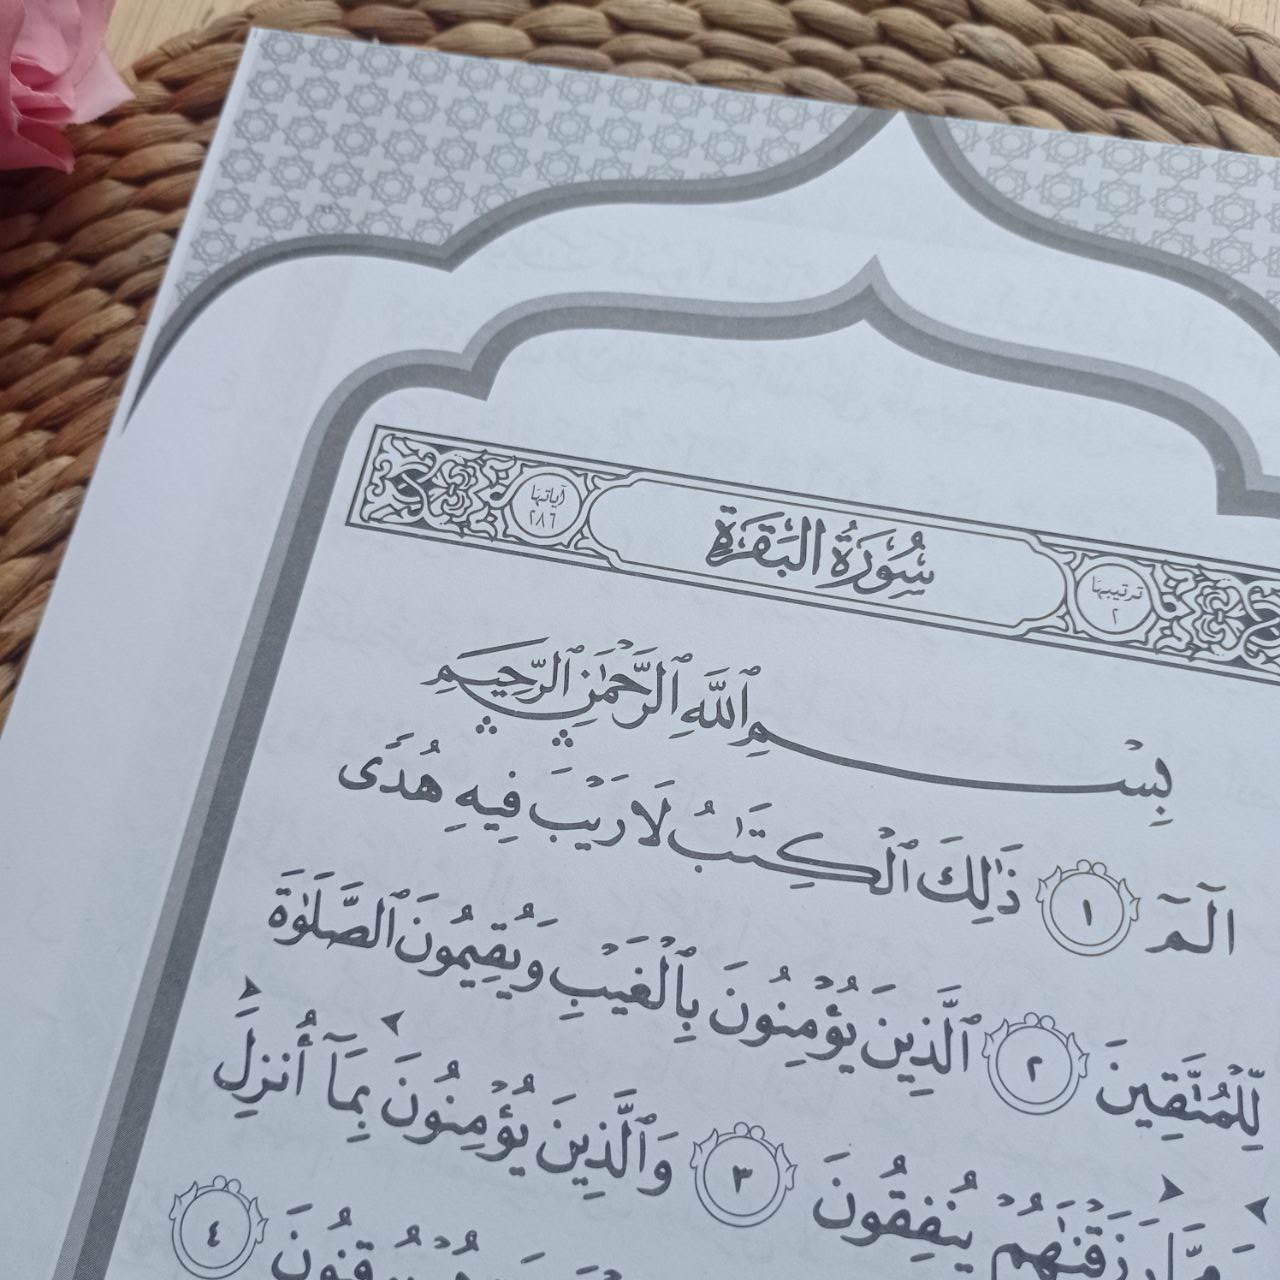 ترتيبها ٢ سُورَةُ البَقَرَةِ آياتها ٢٨٦
بِسۡمِ ٱللَّهِ ٱلرَّحۡمَٰنِ ٱلرَّحِيمِ
الٓمٓ ١ ذَٰلِكَ ٱلۡكِتَٰبُ لَا رَيۡبَۛ فِيهِۛ هُدٗى
لِّلۡمُتَّقِينَ ٢ ٱلَّذِينَ يُؤۡمِنُونَ بِٱلۡغَيۡبِ وَيُقِيمُونَ ٱلصَّلَوٰةَ
رَزَقۡنَٰهُمۡ يُنفِقُونَ ٣ وَٱلَّذِينَ يُؤۡمِنُونَ بِمَآ أُنزِلَ
يُوقِنُونَ ٤